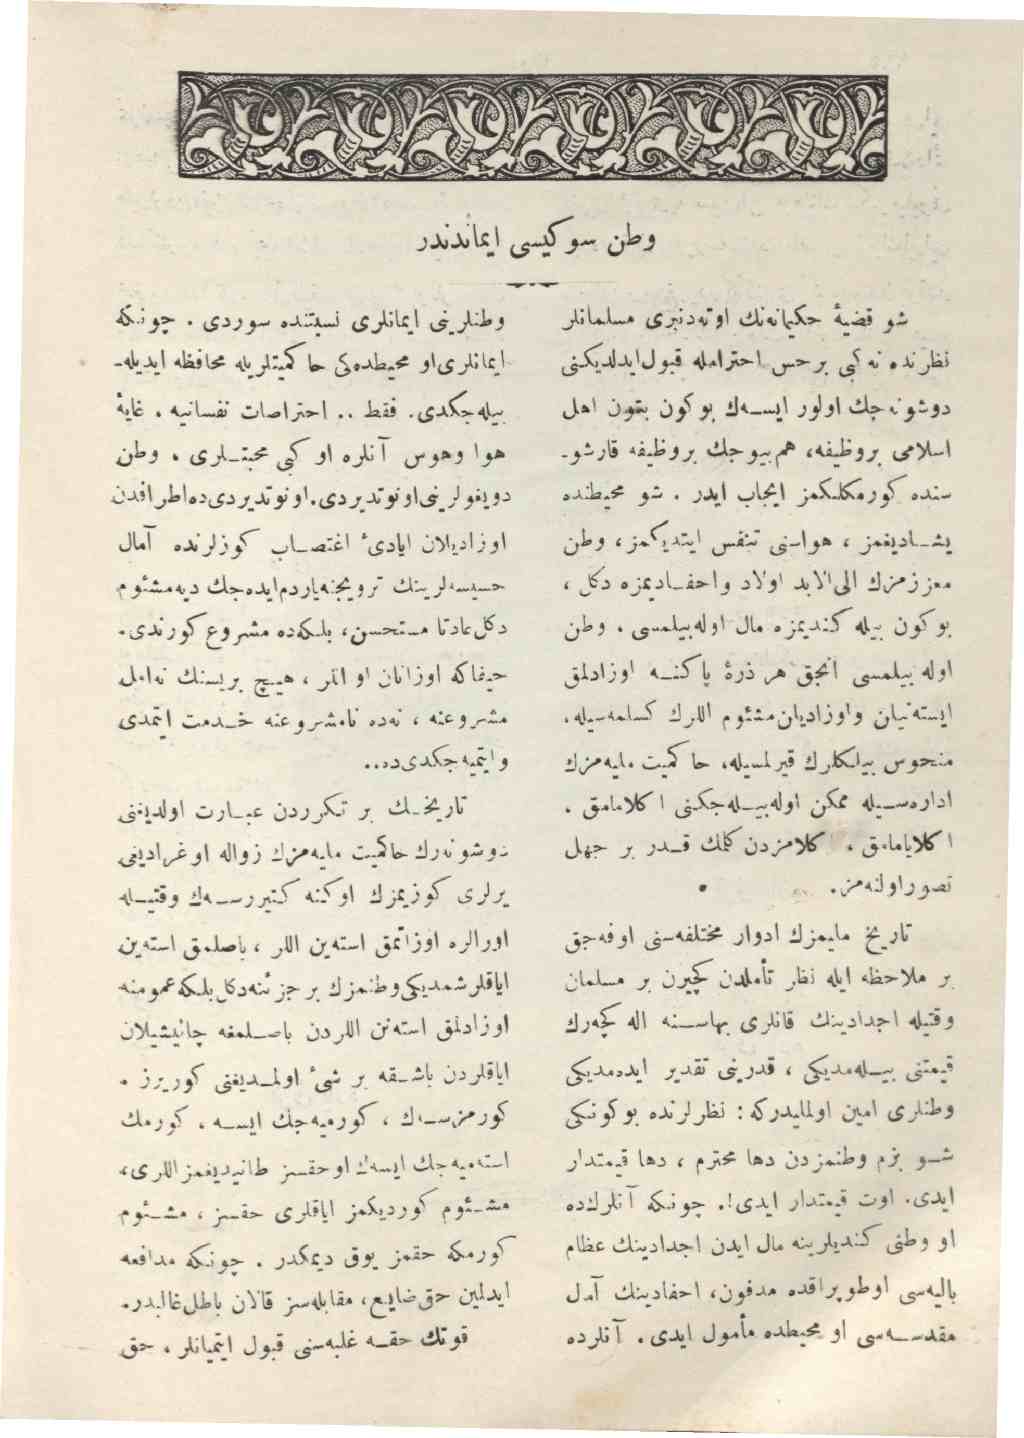 وطن سوكيسی ايماندندر
شو قضيۀ حكيمانه‌نك اوته‌دنبری مسلمانلر
نظرنده نه كبی بر حس احترامله قبول ايدلديكنی
دوشونه‌جك اولور ايسه‌ك بوكون بتون اهل
اسلامی بروظيفه، هم بيوجك بروظيفه قارشو-
سنده كورمكلكمز ايجاب ايدر . شو محيطنده
يشاديغمز ، هواسنی تنفس ايتديكمز ، وطن
معززمزك الی‌الابد اولاد واحفاديمزه دكل ،
بوكون بيله كنديمزه مال اوله‌بيلمسی . وطن
اوله بيلمسی انجق هر ذرۀ پاكنه اوزادلمق
ايسته‌نيان واوزاديان مشئوم اللرك كسلمه‌سيله،
منحوس بيلكلرك قيرلمسيله، حاكميت مليه‌مزك
اداره‌سيله ممكن اوله‌بيله‌جكنی اكلامامق .
اكلاياماق . كلامزدن كلمك قدر بر جهل
تصور اولنه‌مز .
تاريخ مليمزك ادوار مختلفه‌سنی اوفه‌جق
بر ملاحظه ايله نظر تأملدن كچيرن بر مسلمان
وقتيله اجدادينك قانلری بهاسنه اله كچه‌رك
قيمتنی بيله‌مديكی ، قدرينی تقدير ايده‌مديكی
وطنلری امين اولمليدركه : نظرلرنده بوكونكی
شو بزم وطنمزدن دها محترم ، دها قيمتدار
ايدی. اوت قيمتدار ايدی!. چونكه آنلرك‌ده
او وطنی كنديلرينه مال ايدن اجدادينك عظام
باليه‌سی اوطوپراقده مدفون، احفادينك آمل
مقدسه‌سی او محيطده مأمول ايدی. آنلرده
وطنلرينی ايمانلری نسبتنده سوردی . چونكه
ايمانلری‌او محيطده‌كی حاكميتلريله محافظه ايديله-
بيله‌جكدی. فقط .. احتراصات نفسانيه ، غايۀ
هوا وهوس آنلره او كبی محبتلری ، وطن
دويغولرينی‌اونوتديردی.اونوتديردی‌ده‌اطرافدن
اوزاديلان ايادیٔ اغتصاب كوزلرنده آمال
حسيسه‌لرينك ترويجنه‌ياردم‌ايده‌جك ديه‌مشئوم
دكل‌عادتا مستحسن، بلكه‌ده مشروع كورندی.
حيفاكه اوزانان او اللر ، هيچ بريسنك نه‌امل
مشروعنه ، نه‌ده نامشروعنه خدمت ايتمدی
وايتميه‌جكدی‌ده..
تاريخك بر تكرردن عبارت اولديغنی
دوشونه‌رك حاكميت مليه‌مزك زواله اوغراديغی
يرلری كوزيمزك اوكنه كتيررسه‌ك وقتيله
اورالره اوزاتمق استه‌ين اللر ، باصلمق استه‌ين
اياقلرشمديكی‌وطنمزك بر جزئنه‌دكل‌بلكه‌عمومنه
اوزادلمق استه‌نن اللردن باصلمغه چاليشيلان
اياقلردن باشقه بر شیٔ اولمديغنی كوريرز .
كورمزسه‌ك ، كورميه‌جك ايسه ، كورمك
استه‌ميه‌جك ايسه‌ك اوحقسز طانيديغمز اللری،
مشئوم كورديكمز اياقلری حقسز ، مشئوم
كورمكه حقمز يوق ديمكدر . چونكه مدافعه
ايدلمين حق‌ضايع، مقابله‌سز قالان باطل‌غالبدر.
قوتك حقه غلبه‌سنی قبول ايتميانلر ، حق